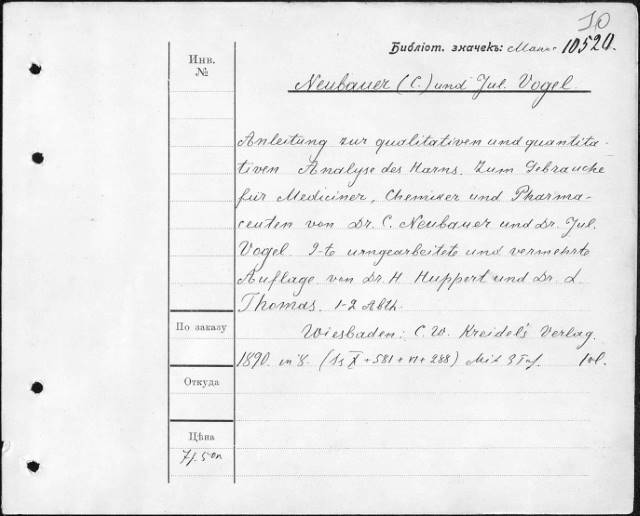 10
Библіот. значекъ: 10520.
Инв.
№
Neubauer (C.) und Jul. Vogel
Anleitung zur qualitativen und quantita-
tiven Analyse des Harns. Zum Gebrauche
für Mediciner, Chemiker und Pharma-
ceuten von Dr. C. Neubauer und Dr. Jul.
Vogel. 9-te umgearbeitete und vermehrte
Auflage von Dr. H. Huppert und Dr. L.
Thomas. 1-2 Abth.
По заказу
Wiesbaden: C. W. Kreidel's Verlag.
1890. in 8. X + 581 + VI + 288) Mit 3 Taf. 1 vol.
Откуда
Цѣна